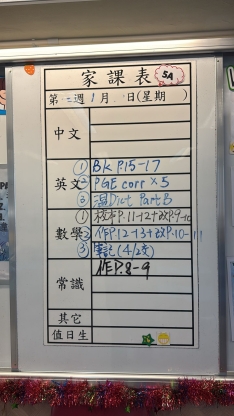 家課表 5A
第二週 1月 日(星期 )
中文
英文
① BK P.15-17
② PGE corr × 5
③ 溫Dict Part B
數學
① P.11-12+改P.9-10
② 作P.12-13+改P.10-11
③ 筆記(4/2交)
常識
作P.8-9
其它
值日生